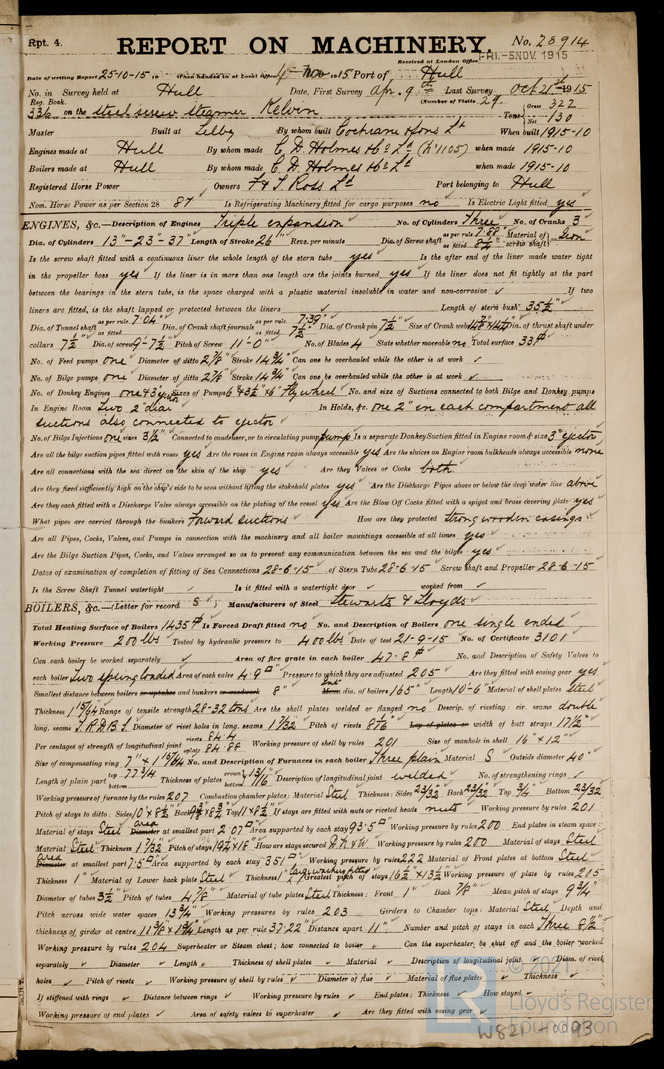 Rpt. 4.
REPORT ON MACHINERY.
No. 28914
Received at London Office FRI. -5 NOV. 1915
Date of writing Report 25-10-15 When handed in at Local Office Nov 1915 Port of Hull
No. in Survey held at Hull Date, First Survey Apr. 9th Last Survey Oct 21st 1915
Reg. Book. (Number of Visits 29
336 on the steel screw steamer Kelvin Tons Gross 322 Net 130
Master Built at Selby By whom built Cochrane & Sons Ld When built 1915-10
Engines made at Hull By whom made C. D. Holmes & Co Ld (No 1105) when made 1915-10
Boilers made at Hull By whom made C. D. Holmes & Co Ld when made 1915-10
Registered Horse Power Owners F & T. Ross Ld Port belonging to Hull
Nom. Horse Power as per Section 28 87 Is Refrigerating Machinery fitted for cargo purposes no Is Electric Light fitted yes
ENGINES, &c.—Description of Engines Triple expansion No. of Cylinders Three No. of Cranks 3
Dia. of Cylinders 13"-23-37" Length of Stroke 26" Revs. per minute Dia. of Screw shaft as per rule 7.88 as fitted 8¼" Material of screw shaft Iron
Is the screw shaft fitted with a continuous liner the whole length of the stern tube yes Is the after end of the liner made water tight
in the propeller boss yes If the liner is in more than one length are the joints burned yes If the liner does not fit tightly at the part
between the bearings in the stern tube, is the space charged with a plastic material insoluble in water and non-corrosive If two
liners are fitted, is the shaft lapped or protected between the liners Length of stern bush 35½"
Dia. of Tunnel shaft as per rule 7.04 as fitted Dia. of Crank shaft journals as per rule 7.39 as fitted 7½ Dia. of Crank pin 7½" Size of Crank webs Dia. of thrust shaft under
collars 7½" Dia. of screw 9-7½ Pitch of Screw 11'-0" No. of Blades 4 State whether moveable no Total surface 33
No. of Feed pumps one Diameter of ditto 2⅞" Stroke 14¾" Can one be overhauled while the other is at work
No. of Bilge pumps one Diameter of ditto 2⅞" Stroke 14¾" Can one be overhauled while the other is at work
No. of Donkey Engines one & 3" ejector Sizes of Pumps 6 x 3½ x 6" flywheel No. and size of Suctions connected to both Bilge and Donkey pumps
In Engine Room Two 2" dia In Holds, &c. one 2" in each compartment all
suctions also connected to ejector
No. of Bilge Injections one sizes 3½" Connected to condenser, or to circulating pump pump Is a separate Donkey Suction fitted in Engine room & size 3" ejector
Are all the bilge suction pipes fitted with roses yes Are the roses in Engine room always accessible yes Are the sluices on Engine room bulkheads always accessible none
Are all connections with the sea direct on the skin of the ship yes Are they Valves or Cocks both
Are they fixed sufficiently high on the ship's side to be seen without lifting the stokehold plates yes Are the Discharge Pipes above or below the deep water line above
Are they each fitted with a Discharge Valve always accessible on the plating of the vessel yes Are the Blow Off Cocks fitted with a spigot and brass covering plate yes
What pipes are carried through the bunkers Forward suctions How are they protected strong wooden casings
Are all Pipes, Cocks, Valves, and Pumps in connection with the machinery and all boiler mountings accessible at all times yes
Are the Bilge Suction Pipes, Cocks, and Valves arranged so as to prevent any communication between the sea and the bilges yes
Dates of examination of completion of fitting of Sea Connections 28-6-15 of Stern Tube 28-6-15 Screw shaft and Propeller 28-6-15
Is the Screw Shaft Tunnel watertight Is it fitted with a watertight door worked from
BOILERS, &c.—(Letter for record S) Manufacturers of Steel Stewarts & Lloyds
Total Heating Surface of Boilers 1435 Is Forced Draft fitted no No. and Description of Boilers one single ended
Working Pressure 200 lbs Tested by hydraulic pressure to 400 lbs Date of test 21-9-15 No. of Certificate 3101
Can each boiler be worked separately Area of fire grate in each boiler 47.8 No. and Description of Safety Valves to
each boiler Two spring loaded Area of each valve 4.9 Pressure to which they are adjusted 205 Are they fitted with easing gear yes
Smallest distance between boilers or uptakes and bunkers or woodwork 8" Int. Mean dia. of boilers 165" Length 10'-6" Material of shell plates Steel
Thickness 1 15/64 Range of tensile strength 28-32 tons Are the shell plates welded or flanged no Descrip. of riveting: cir. seams double
long. seams T.R.D.B.S. Diameter of rivet holes in long. seams 1 7/32 Pitch of rivets 8 1/16 Lap of plates or width of butt straps 17½"
Per centages of strength of longitudinal joint rivets 84.4 plate 84.88 Working pressure of shell by rules 201 Size of manhole in shell 16" x 12"
Size of compensating ring 7" x 1 15/64 No. and Description of Furnaces in each boiler Three plain Material S Outside diameter 40"
Length of plain part top 77¾ bottom Thickness of plates crown bottom 13/16 Description of longitudinal joint welded No. of strengthening rings
Working pressure of furnace by the rules 207 Combustion chamber plates: Material Steel Thickness: Sides 23/32 Back 23/32 Top ¾" Bottom 23/32
Pitch of stays to ditto: Sides 10" x 8½" Back Top 11 x 8½" If stays are fitted with nuts or riveted heads nuts Working pressure by rules 201
Material of stays Steel area Diameter at smallest part 2.07 Area supported by each stay 93.5 Working pressure by rules 200 End plates in steam space:
Material Steel Thickness 1 7/32 Pitch of stays 19½ x 18 How are stays secured D.N. & W Working pressure by rules 200 Material of stays Steel
area Diameter at smallest part 7.5 Area supported by each stay 351 Working pressure by rules 222 Material of Front plates at bottom Steel
Thickness 1" Material of Lower back plate Steel Thickness Greatest pitch of stays 16½ x 13½" Working pressure of plate by rules 215
Diameter of tubes 3½" Pitch of tubes 4⅞" Material of tube plates Steel Thickness: Front 1" Back ⅞" Mean pitch of stays 9¾"
Pitch across wide water spaces 13¾" Working pressures by rules 203 Girders to Chamber tops: Material Steel Depth and
thickness of girder at centre Length as per rule 37.22 Distance apart 11" Number and pitch of stays in each Three 8½"
Working pressure by rules 204 Superheater or Steam chest; how connected to boiler Can the superheater be shut off and the boiler worked
separately Diameter Length Thickness of shell plates Material Description of longitudinal joint Diam. of rivet
holes Pitch of rivets Working pressure of shell by rules Diameter of flue Material of flue plates Thickness
If stiffened with rings Distance between rings Working pressure by rules End plates: Thickness How stayed
Working pressure of end plates Area of safety valves to superheater Are they fitted with easing gear
Lloyd's Register
Foundation
W821-0093